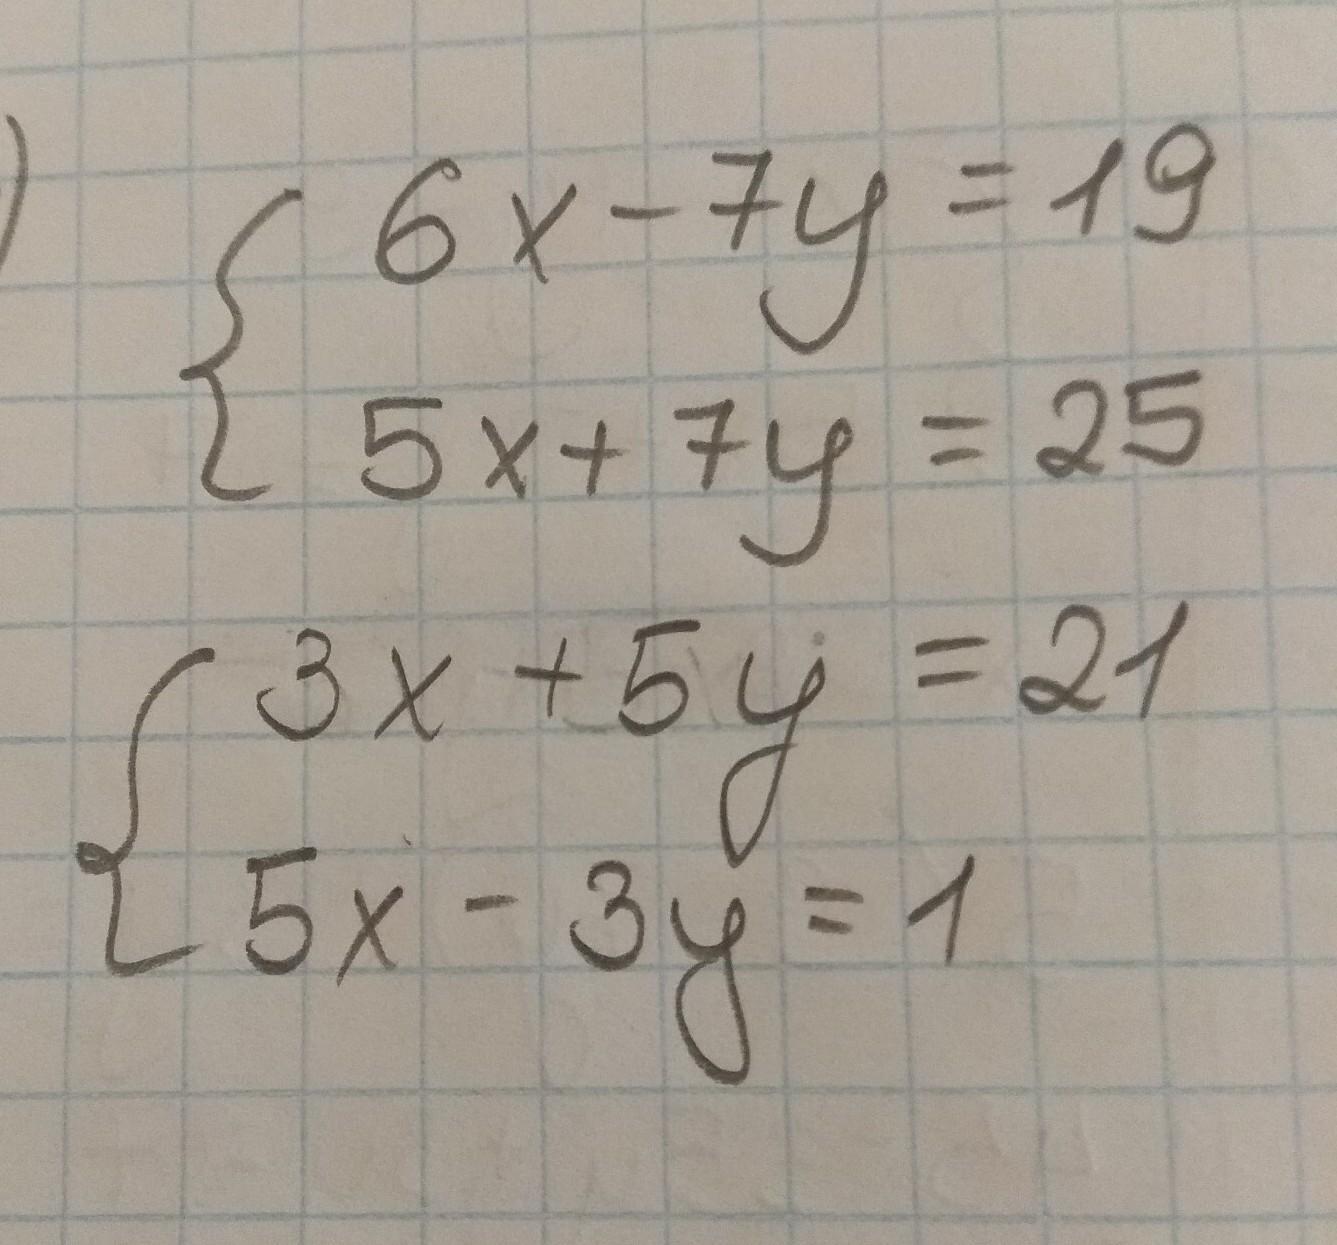 )
6x - 7y = 19
5x + 7y = 25
3x + 5y = 21
5x - 3y = 1